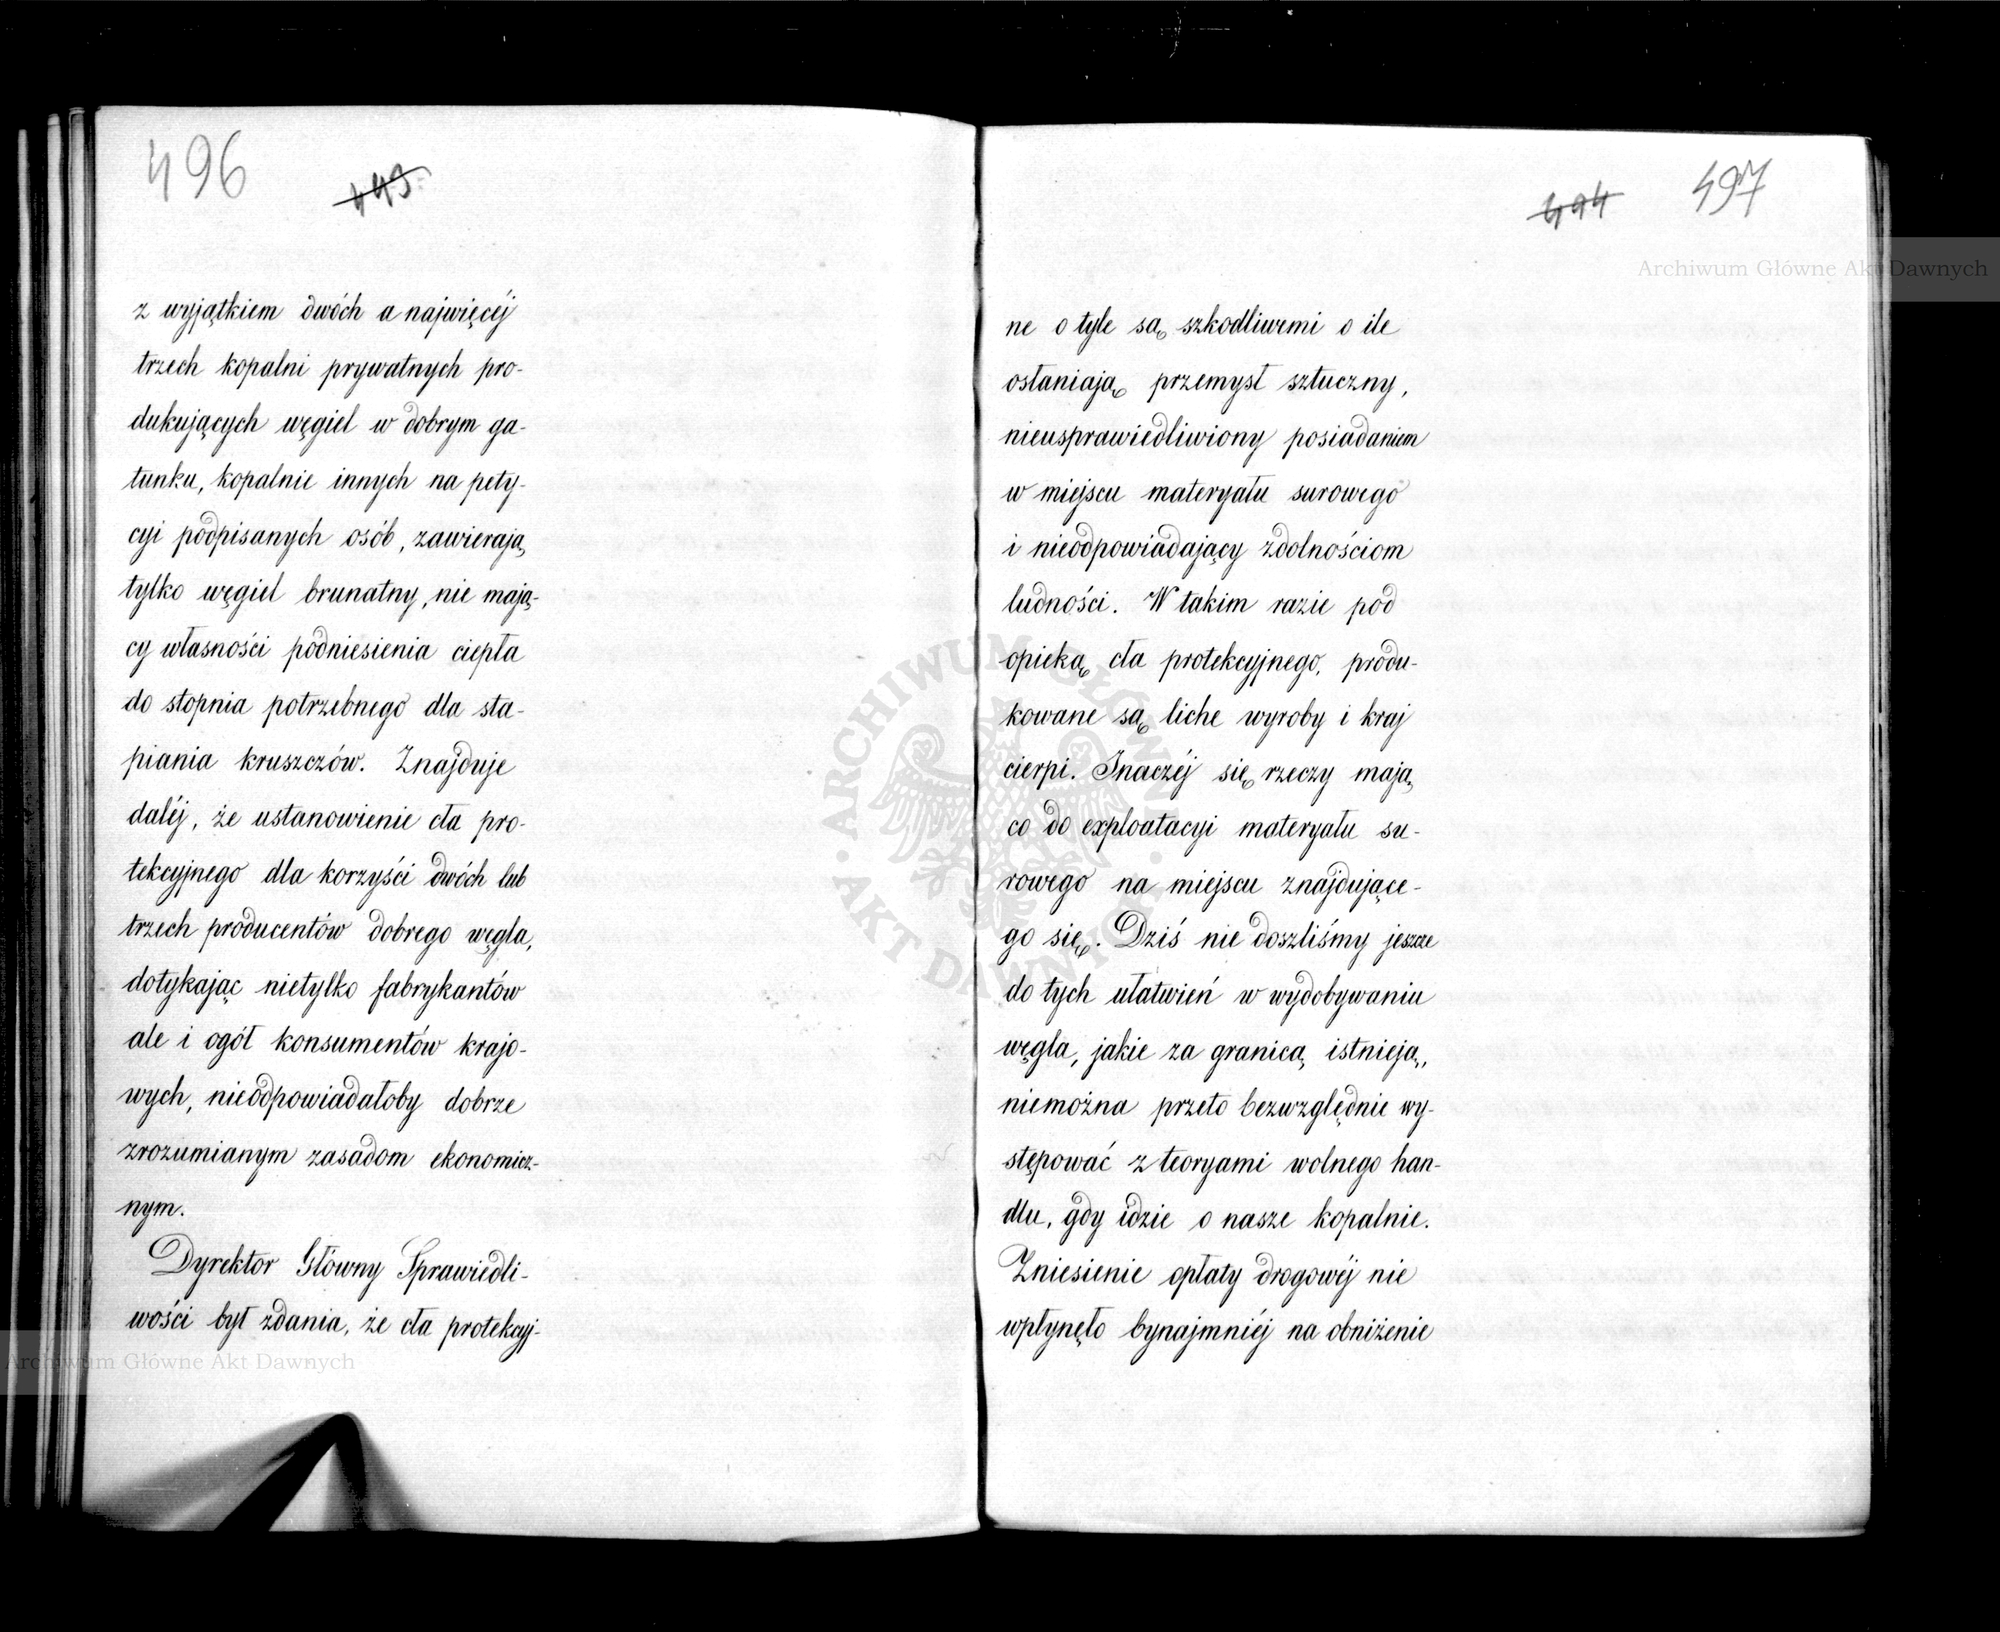 496
443
z wyjątkiem dwóch a najwięcéj
trzech kopalni prywatnych pro-
dukujących węgiel w dobrym ga-
tunku, kopalnie innych na pety-
cyi podpisanych osób, zawierają
tylko węgiel brunatny, nie mają-
cy własności podniesienia ciepła
do stopnia potrzebnego dla sta-
piania kruszczów. Znajduje
daléj, że ustanowienie cła pro-
tekcyjnego dla korzyści dwóch lub
trzech producentów dobrego węgla,
dotykając nietylko fabrykantów
ale i ogół konsumentów krajo-
wych, nieodpowiadałoby dobrze
zrozumianym zasadom ekonomicz-
nym.
Dyrektor Główny Sprawiedli-
wości był zdania, że cła protekcyj-
494
497
ne o tyle są szkodliwemi o ile
osłaniają przemysł sztuczny,
nieusprawiedliwiony posiadaniem
w miejscu materyału surowego
i nieodpowiadający zdolnościom
ludności. W takim razie pod
opieką cła protekcyjnego, produ-
kowane są liche wyroby i kraj
cierpi. Inaczéj się rzeczy mają
co do exploatacyi materyału su-
rowego na miejscu znajdujące-
go się. Dziś nie doszliśmy jeszcze
do tych ułatwień w wydobywaniu
węgla, jakie za granicą istnieją,
niemożna przeto bezwzględnie wy-
stępować z teoryami wolnego han-
dlu, gdy idzie o nasze kopalnie.
Zniesienie opłaty drogowéj nie
wpłynęło bynajmniéj na obniżenie
Archiwum Główne Akt Dawnych
Archiwum Główne Akt Dawnych
ARCHIWUM GŁÓWNE
AKT DAWNYCH